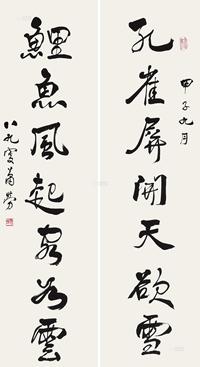 甲子九月
孔雀屏開天欲雪
鯉魚風起為雲
八九叟蕭勞